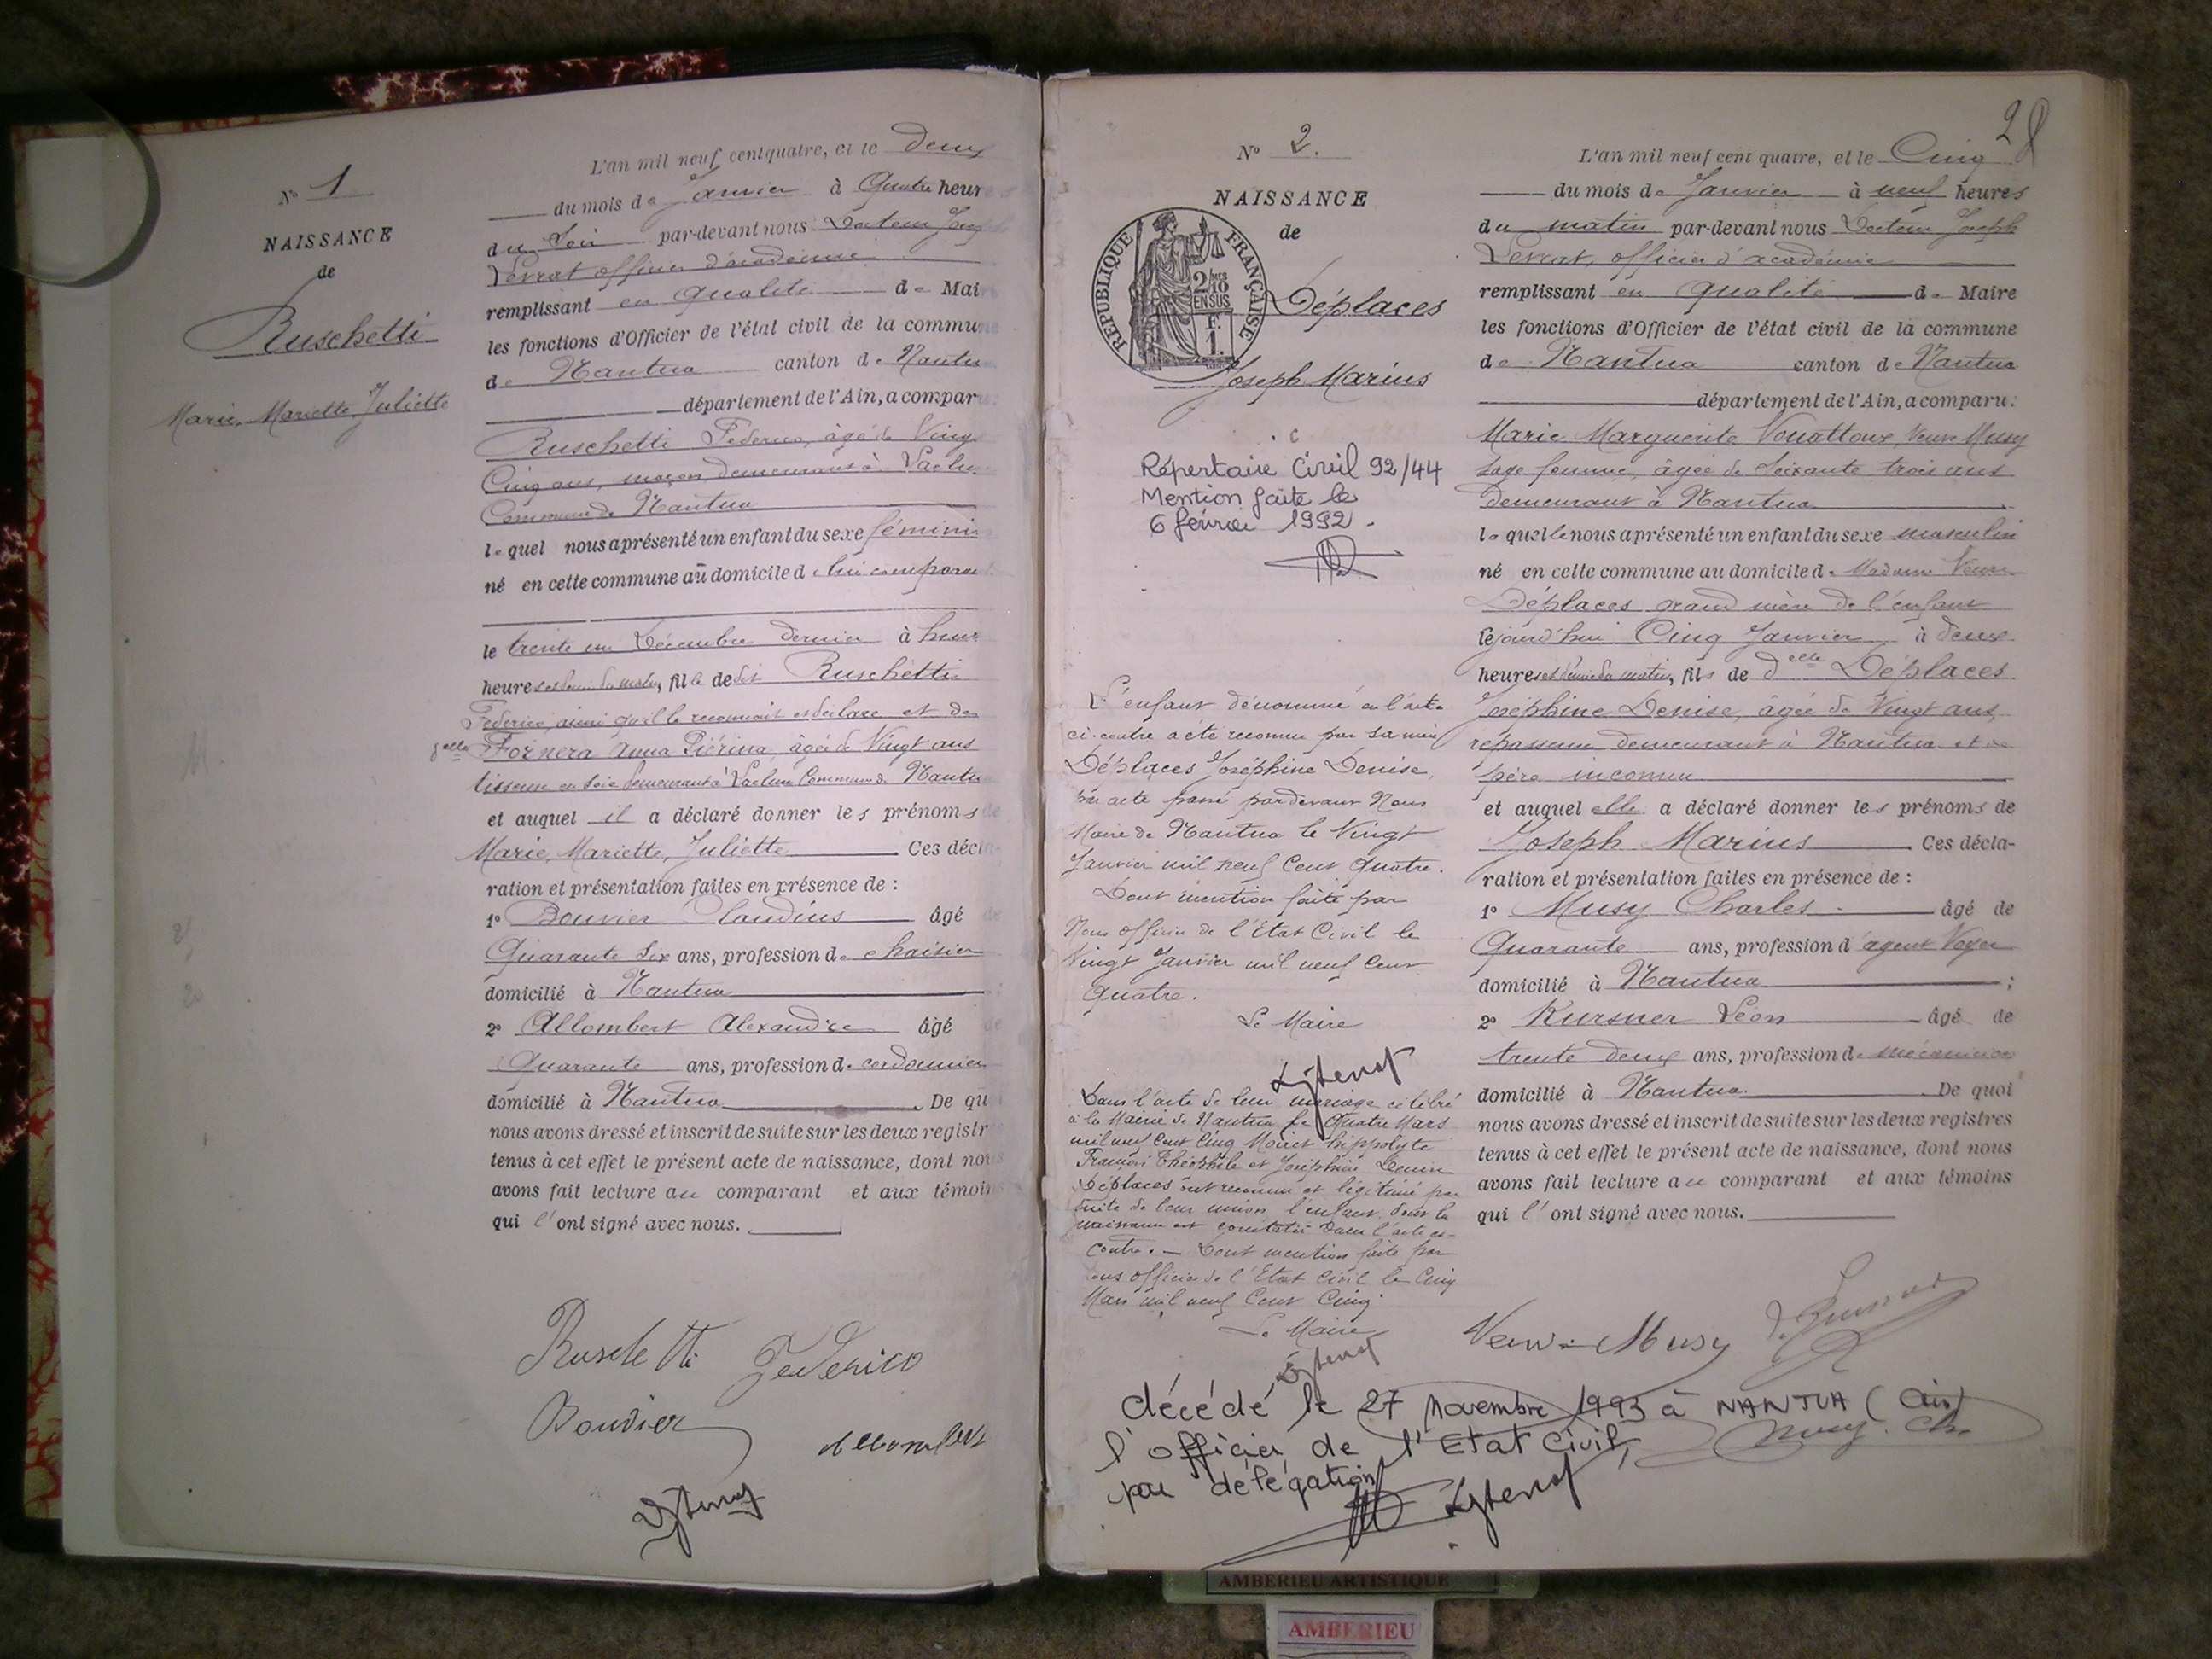 N° 1
NAISSANCE
de
Ruschetti
Marie, Mariette, Juliette
L'an mil neuf cent quatre, et le deux
du mois de Janvier à Quatre heur
du Soir par-devant nous Docteur
Levrat officier d'académie
remplissant en qualité de Mai
les fonctions d'Officier de l'état civil de la commu
de Nantua canton de Nantu
département de l'Ain, a compar
Ruschetti Federico, âgé de Vingt
Cinq ans, maçon, demeurant à
Commune de Nantua
le quel nous a présenté un enfant du sexe féminin
né en cette commune au domicile de lui comparant
le trente un Décembre dernier à
heures et demie du matin, fille de dit Ruschetti
Federico, ainsi qu'il le reconnait et déclare et de
delle Fornera Anna Piérina, âgée de Vingt ans
tisseuse en soie demeurant à Commune de Nantu
et auquel il a déclaré donner les prénoms
Marie, Mariette, Juliette Ces décla-
ration et présentation faites en présence de :
1° Bouvier Claudius âgé de
Quarante Six ans, profession de chaisier
domicilié à Nantua ;
2° Allombert Alexandre âgé de
Quarante ans, profession de cordonnier
domicilié à Nantua. De qu
nous avons dressé et inscrit de suite sur les deux registr
tenus à cet effet le présent acte de naissance, dont nous
avons fait lecture au comparant et aux témoins
qui l'ont signé avec nous.
Ruschetti Federico
Bouvier
Allombert
28
N° 2.
NAISSANCE
de
RÉPUBLIQUE FRANÇAISE
2/10 EN SUS
F. 1.
Déplaces
Joseph Marius
Répertoire Civil 92/44
Mention faite le
6 février 1992.
L'enfant dénommé en l'acte
ci-contre a été reconnu par sa mère
Déplaces Joséphine Denise,
par acte passé pardevant Nous
Maire de Nantua le Vingt
Janvier mil neuf Cent Quatre.
Dont mention faite par
Nous officier de l'Etat Civil le
Vingt Janvier mil neuf Cent
Quatre.
Le Maire
Dans l'acte de leur mariage célébré
à la Mairie de Nantua le Quatre Mars
mil neuf Cent Cinq hippolyte
François Théophile et Joséphine Denise
Déplaces ont reconnu et légitimé par
suite de leur union l'enfant dont la
naissance est constatée dans l'acte ci-
contre. — Dont mention faite par
nous officier de l'Etat Civil le Cinq
Mars mil neuf Cent Cinq.
Le Maire
L'an mil neuf cent quatre, et le Cinq
du mois de Janvier à neuf heures
du matin par-devant nous Docteur Joseph
Levrat, officier d'académie
remplissant en qualité de Maire
les fonctions d'Officier de l'état civil de la commune
de Nantua canton de Nantua
département de l'Ain, a comparu:
Marie Marguerite Veuve Musy
sage femme, âgée de Soixante trois ans
demeurant à Nantua
laquelle nous a présenté un enfant du sexe masculin
né en cette commune au domicile de Madame Veuve
Déplaces grand mère de l'enfant
le jourd'hui Cinq Janvier à deux
heures et demie du matin, fils de delle Déplaces
Joséphine Denise, âgée de Vingt ans,
repasseuse demeurant à Nantua et de
père inconnu
et auquel elle a déclaré donner les prénoms de
Joseph Marius Ces décla-
ration et présentation faites en présence de :
1° Musy Charles âgé de
Quarante ans, profession d'agent Voyer
domicilié à Nantua ;
2° Kursner Léon âgé de
trente deux ans, profession de mécanicien
domicilié à Nantua. De quoi
nous avons dressé et inscrit de suite sur les deux registres
tenus à cet effet le présent acte de naissance, dont nous
avons fait lecture au comparant et aux témoins
qui l'ont signé avec nous.
Veuve Musy
décédé le 27 Novembre 1993 à NANTUA (Ain)
l'officier de l'Etat Civil,
par délégation
Musy Ch.
AMBERIEU ARTISTIQUE
AMBERIEU